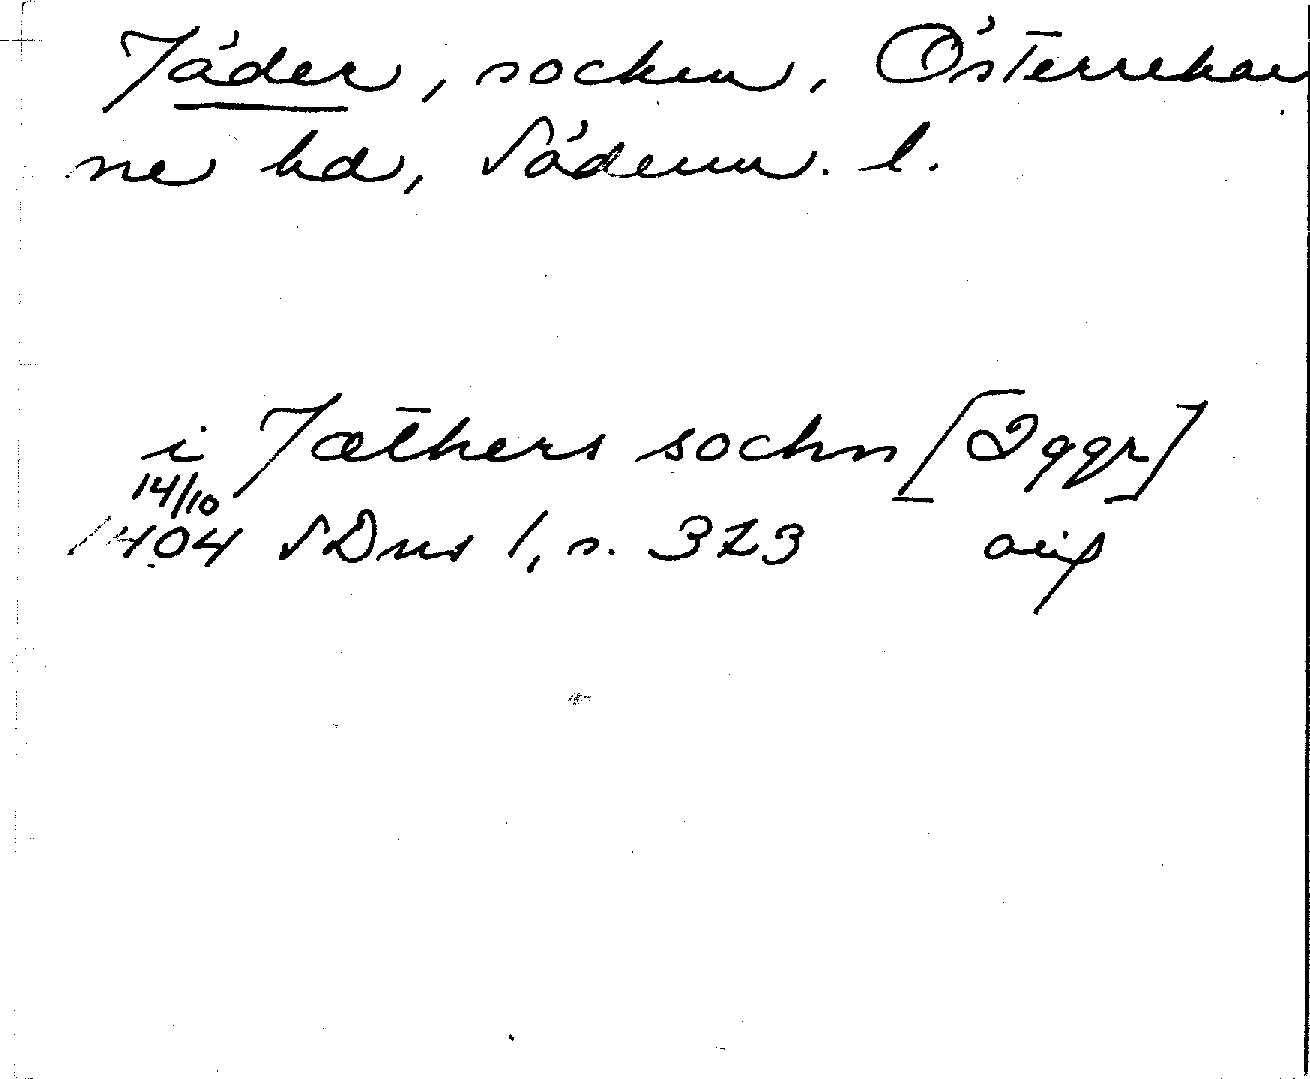 Jäder, socken, Österrekar
ne hd, Södermm. l.
i Jæthers sochn [2 ggr]
14/10
1404 SDns 1, s. 323 avs